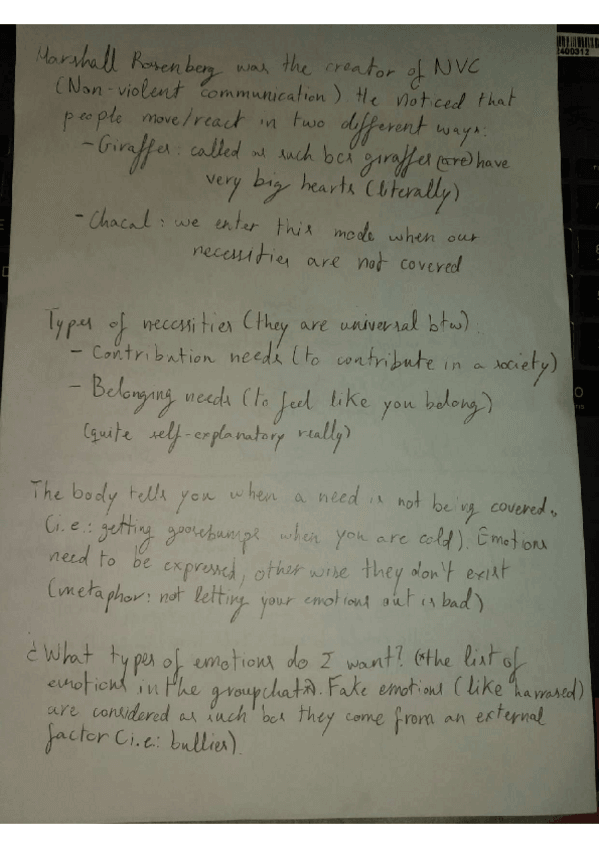 Marshall Rosenberg was the creator of NVC
(Non-violent communication). He noticed that
people move/react in two different ways:
- Giraffes: called as such bcs giraffes (are) have
very big hearts (literally)
- Chacal: we enter this mode when our
necessities are not covered
Types of necessities (they are universal btw):
- Contribution needs (to contribute in a society)
- Belonging needs (to feel like you belong)
(quite self-explanatory really)
The body tells you when a need is not being covered.
(i.e.: getting goosebumps when you are cold). Emotions
need to be expressed, otherwise they don't exist
(metaphor: not letting your emotions out is bad)
¿What types of emotions do I want? (*the list of
emotions in the groupchat*). Fake emotions (like harrased)
are considered as such bcs they come from an external
factor (i.e.: bullies).